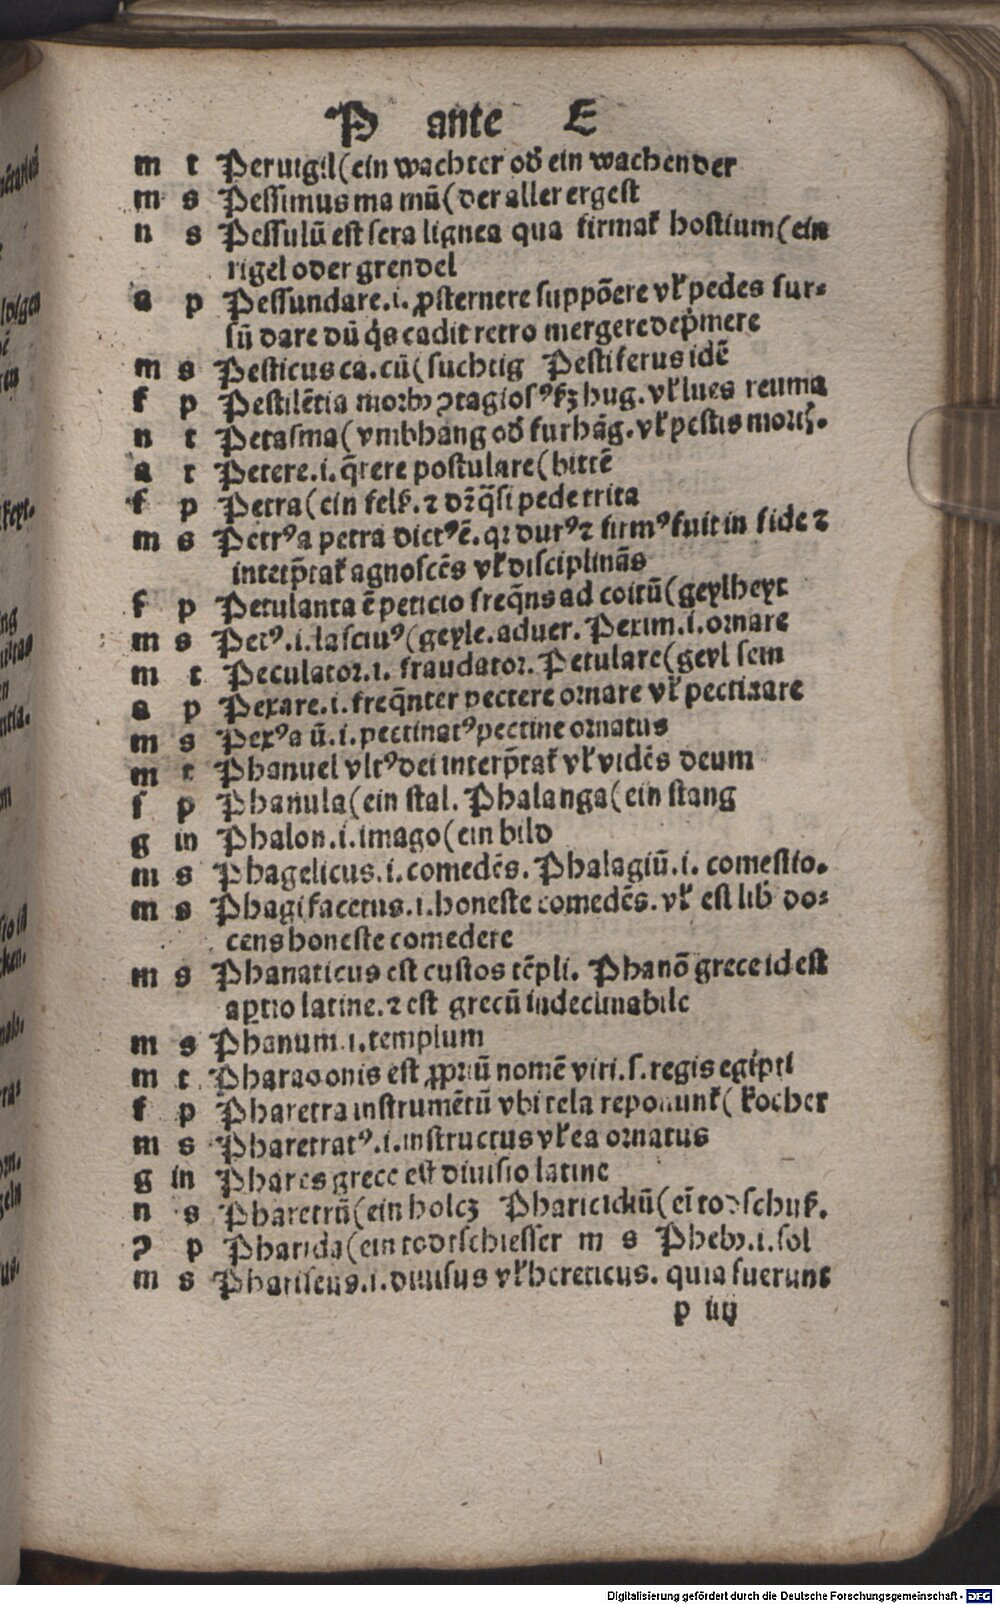 P ante E
m t Peruigil(ein wachter od̛ ein wachender
m s Pessimus ma mū(der aller ergest
n s Pessulū est sera lignea qua firmať hostium(ein
rigel oder grendel
a p Pessundare.i. ꝓsternere suppōere vľ pedes sur-
sū dare dū q̇s cadit retro mergere dep̄mere
m s Pesticus ca.cū(suchtig Pestiferus idē
f p Pestilētia morbꝰ ꝯtagiosꝰ fꝫ hug. vľ lues reuma
n t Petasma(vmbhang od̛ furhāg. vľ pestis morꝭ.
a t Petere.i. q̄rere postulare(bittē
f p Petra(ein felß. ⁊ dꝛ̄ q̄si pede trita
m s Petrꝰ a petra dictꝰ ē. qꝛ durꝰ ⁊ firmꝰ fuit in fide ⁊
interp̄tať agnoscēs vľ disciplinās
f p Petulanta ē peticio freq̄ns ad coitū(geylheyt
m s Petꝰ.i.lasciuꝰ(geyle.aduer. Petim.i.ornare
m t Peculator.i. fraudator. Petulare(geyl sein
a p Pexare.i. freq̄nter pectere ornare vľ pectizare
m s Pexꝰ a ū.i. pectinatꝰ pectine ornatus
m t Phanuel vltꝰ dei interp̄tať vľ vidēs deum
f p Phanula(ein stal. Phalanga(ein stang
g in Phalon.i.imago(ein bild
m s Phagelicus.i.comedēs. Phalagiū.i. comestio.
m s Phagifacetus.i.honeste comedēs. vľ est lib̛ do-
cens honeste comedere
m s Phanaticus est custos tēpli. Phanō grece id est
aꝑtio latine. ⁊ est grecū indeclinabile
m s Phanum.i.templum
m t Pharao onis est ꝓpriū nomē viri.s.regis egipti
f p Pharetra instrumētū vbi tela reponunť(kocher
m s Pharetratꝰ.i.instructus vľ ea ornatus
g in Phares grece est diuisio latine
n s Pharetrū(ein holcz Pharicidiū(eī todschuß.
ꝯ p Pharida(ein todtschiesser m s Phebꝰ.i.sol
m s Phariseus.i.diuisus vľ hereticus. quia fuerunt
p iiij
Digitalisierung gefördert durch die Deutsche Forschungsgemeinschaft - DFG